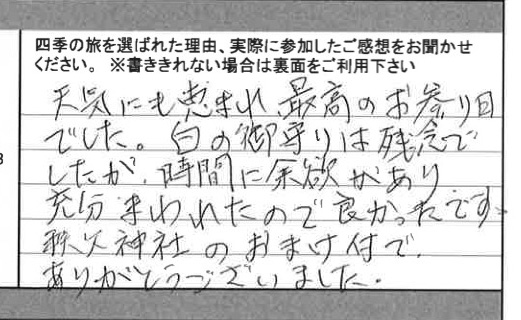 四季の旅を選ばれた理由、実際に参加したご感想をお聞かせ
ください。 ※書ききれない場合は裏面をご利用下さい
天気にも恵まれ最高のお参り日
でした。白の御守りは残念で
したが、時間に余欲があり
充分まわれたので良かったです。
秩父神社のおまけ付で、
ありがとうございました。